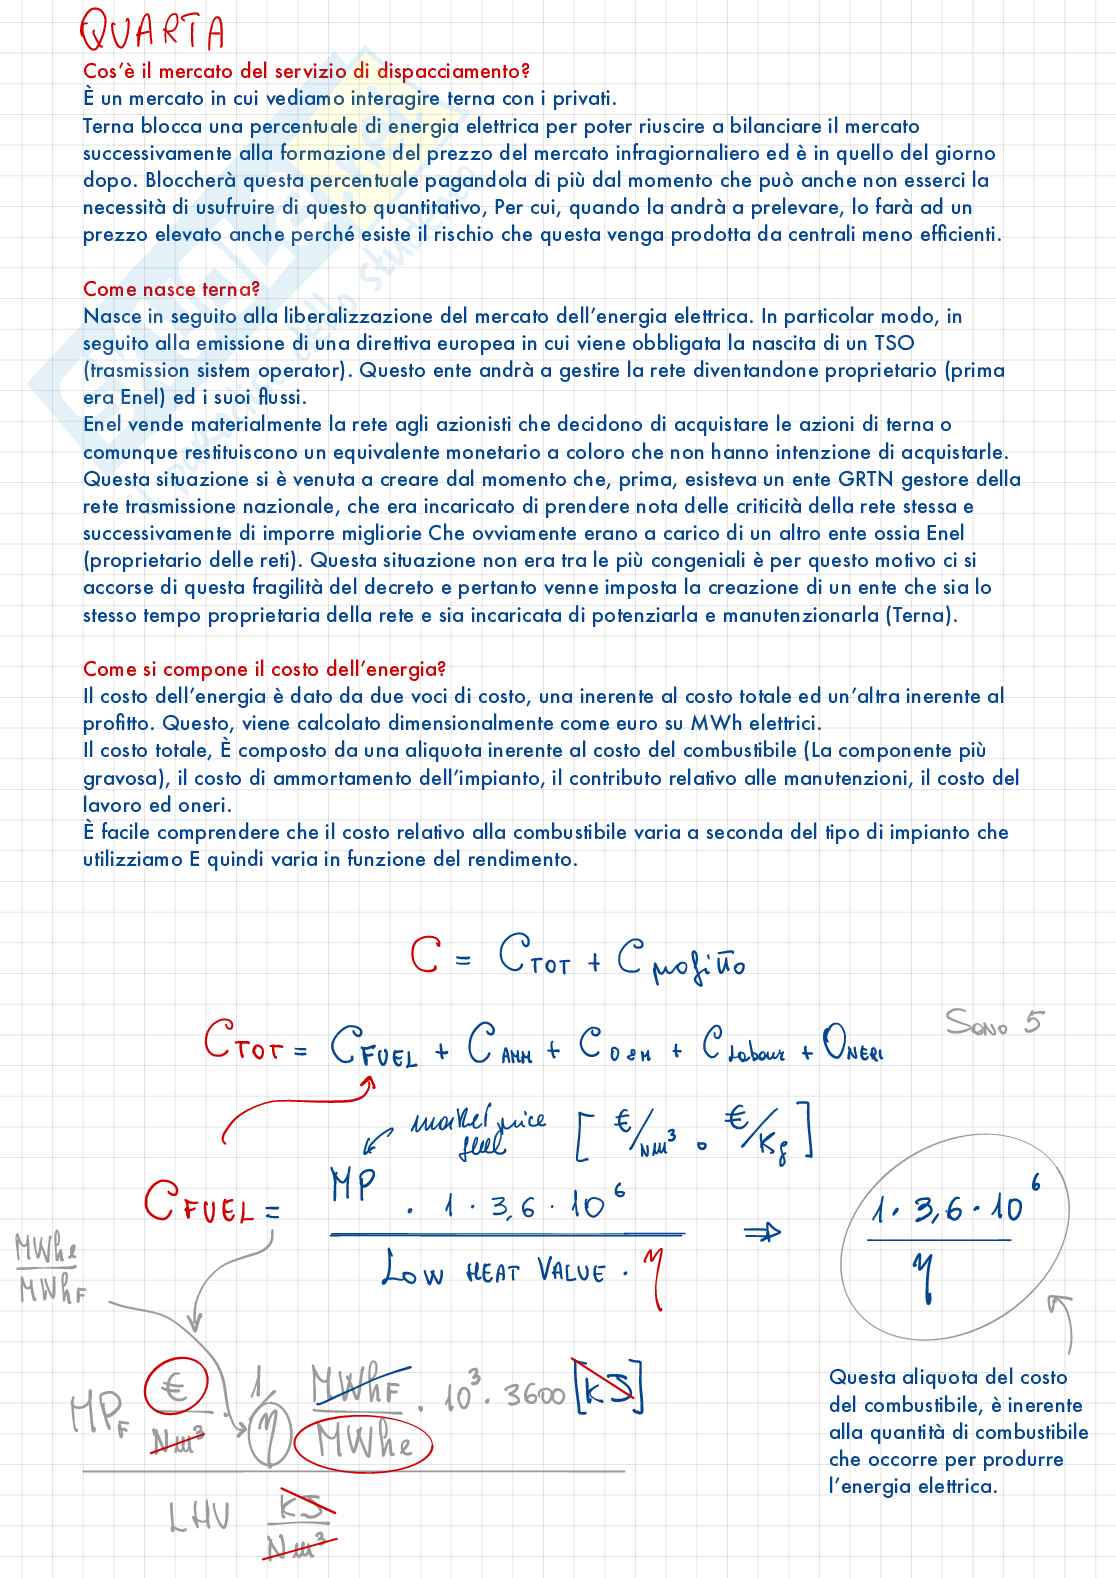 QUARTA
Cos'è il mercato del servizio di dispacciamento?
È un mercato in cui vediamo interagire terna con i privati.
Terna blocca una percentuale di energia elettrica per poter riuscire a bilanciare il mercato
successivamente alla formazione del prezzo del mercato infragiornaliero ed è in quello del giorno
dopo. Bloccherà questa percentuale pagandola di più dal momento che può anche non esserci la
necessità di usufruire di questo quantitativo, Per cui, quando la andrà a prelevare, lo farà ad un
prezzo elevato anche perché esiste il rischio che questa venga prodotta da centrali meno efficienti.
Come nasce terna?
Nasce in seguito alla liberalizzazione del mercato dell'energia elettrica. In particolar modo, in
seguito alla emissione di una direttiva europea in cui viene obbligata la nascita di un TSO
(trasmission sistem operator). Questo ente andrà a gestire la rete diventandone proprietario (prima
era Enel) ed i suoi flussi.
Enel vende materialmente la rete agli azionisti che decidono di acquistare le azioni di terna o
comunque restituiscono un equivalente monetario a coloro che non hanno intenzione di acquistarle.
Questa situazione si è venuta a creare dal momento che, prima, esisteva un ente GRTN gestore della
rete trasmissione nazionale, che era incaricato di prendere nota delle criticità della rete stessa e
successivamente di imporre migliorie Che ovviamente erano a carico di un altro ente ossia Enel
(proprietario delle reti). Questa situazione non era tra le più congeniali è per questo motivo ci si
accorse di questa fragilità del decreto e pertanto venne imposta la creazione di un ente che sia lo
stesso tempo proprietaria della rete e sia incaricata di potenziarla e manutenzionarla (Terna).
Come si compone il costo dell'energia?
Il costo dell'energia è dato da due voci di costo, una inerente al costo totale ed un'altra inerente al
profitto. Questo, viene calcolato dimensionalmente come euro su MWh elettrici.
Il costo totale, È composto da una aliquota inerente al costo del combustibile (La componente più
gravosa), il costo di ammortamento dell'impianto, il contributo relativo alle manutenzioni, il costo del
lavoro ed oneri.
È facile comprendere che il costo relativo alla combustibile varia a seconda del tipo di impianto che
utilizziamo E quindi varia in funzione del rendimento.
C = C TOT + C profitto
C TOT = C FUEL + C AMM + C O&M + C Labour + O NERI
SONO 5
market price
fuel
[ €/Nm³ o €/Kg ]
C FUEL = MP · 1 · 3,6 · 10⁶
LOW HEAT VALUE · η
⇒ 1 · 3,6 · 10⁶
η
MWhe
MWhF
MPF € / Nm³ · 1/η MWhF / MWhe · 10³ · 3600 [kJ]
LHV kJ / Nm³
Questa aliquota del costo
del combustibile, è inerente
alla quantità di combustibile
che occorre per produrre
l'energia elettrica.